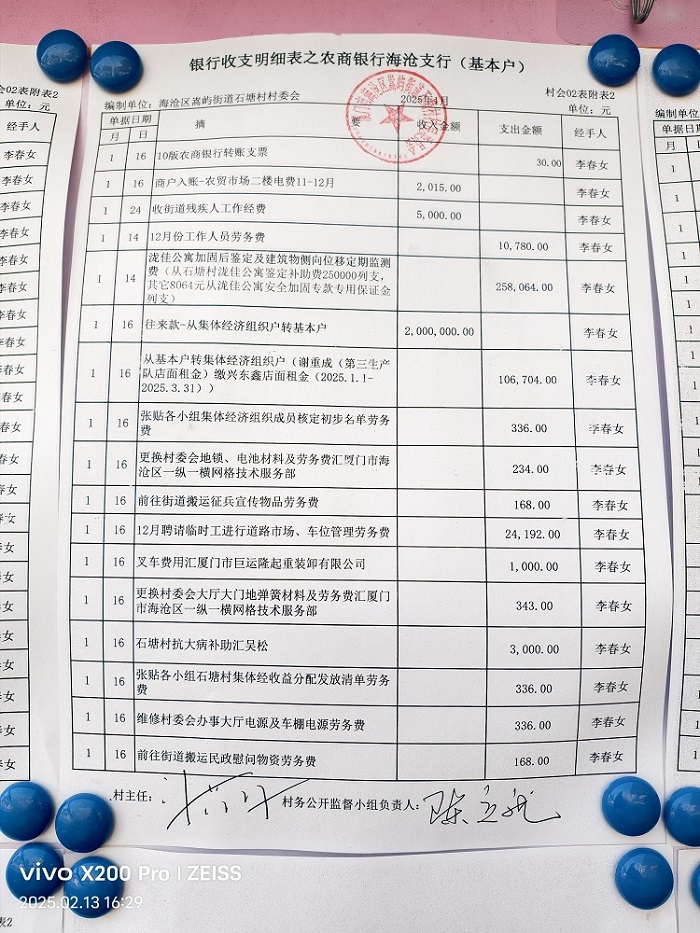 银行收支明细表之农商银行海沧支行（基本户）
村会02表附表2
编制单位：海沧区嵩屿街道石塘村村委会
2025年1月
单位：元
单据日期 摘 要 收入金额 支出金额 经手人
月 日
1 16 10版农商银行转账支票 30.00 李春女
1 16 商户入账-农贸市场二楼电费11-12月 2,015.00 李春女
1 24 收街道残疾人工作经费 5,000.00 李春女
1 14 12月份工作人员劳务费 10,780.00 李春女
1 14 泷佳公寓加固后鉴定及建筑物侧向位移定期监测
费（从石塘村泷佳公寓鉴定补助费250000列支，
其它8064元从泷佳公寓安全加固专款专用保证金
列支） 258,064.00 李春女
1 16 往来款-从集体经济组织户转基本户 2,000,000.00 李春女
1 16 从基本户转集体经济组织户（谢重成（第三生产
队店面租金）缴兴东鑫店面租金（2025.1.1-
2025.3.31）） 106,704.00 李春女
1 16 张贴各小组集体经济组织成员核定初步名单劳务
费 336.00 李春女
1 16 更换村委会地锁、电池材料及劳务费汇厦门市海
沧区一纵一横网格技术服务部 234.00 李春女
1 16 前往街道搬运征兵宣传物品劳务费 168.00 李春女
1 16 12月聘请临时工进行道路市场、车位管理劳务费 24,192.00 李春女
1 16 叉车费用汇厦门市巨运隆起重装卸有限公司 1,000.00 李春女
1 16 更换村委会大厅大门地弹簧材料及劳务费汇厦门
市海沧区一纵一横网格技术服务部 343.00 李春女
1 16 石塘村抗大病补助汇吴松 3,000.00 李春女
1 16 张贴各小组石塘村集体经收益分配发放清单劳务
费 336.00 李春女
1 16 维修村委会办事大厅电源及车棚电源劳务费 336.00 李春女
1 16 前往街道搬运民政慰问物资劳务费 168.00 李春女
村主任：
村务公开监督小组负责人：
会02表附表2
单位：元
经手人
李春女
李春女
李春女
李春女
编制单位：
单
月
vivo X200 Pro | ZEISS
2025.02.13 16:29